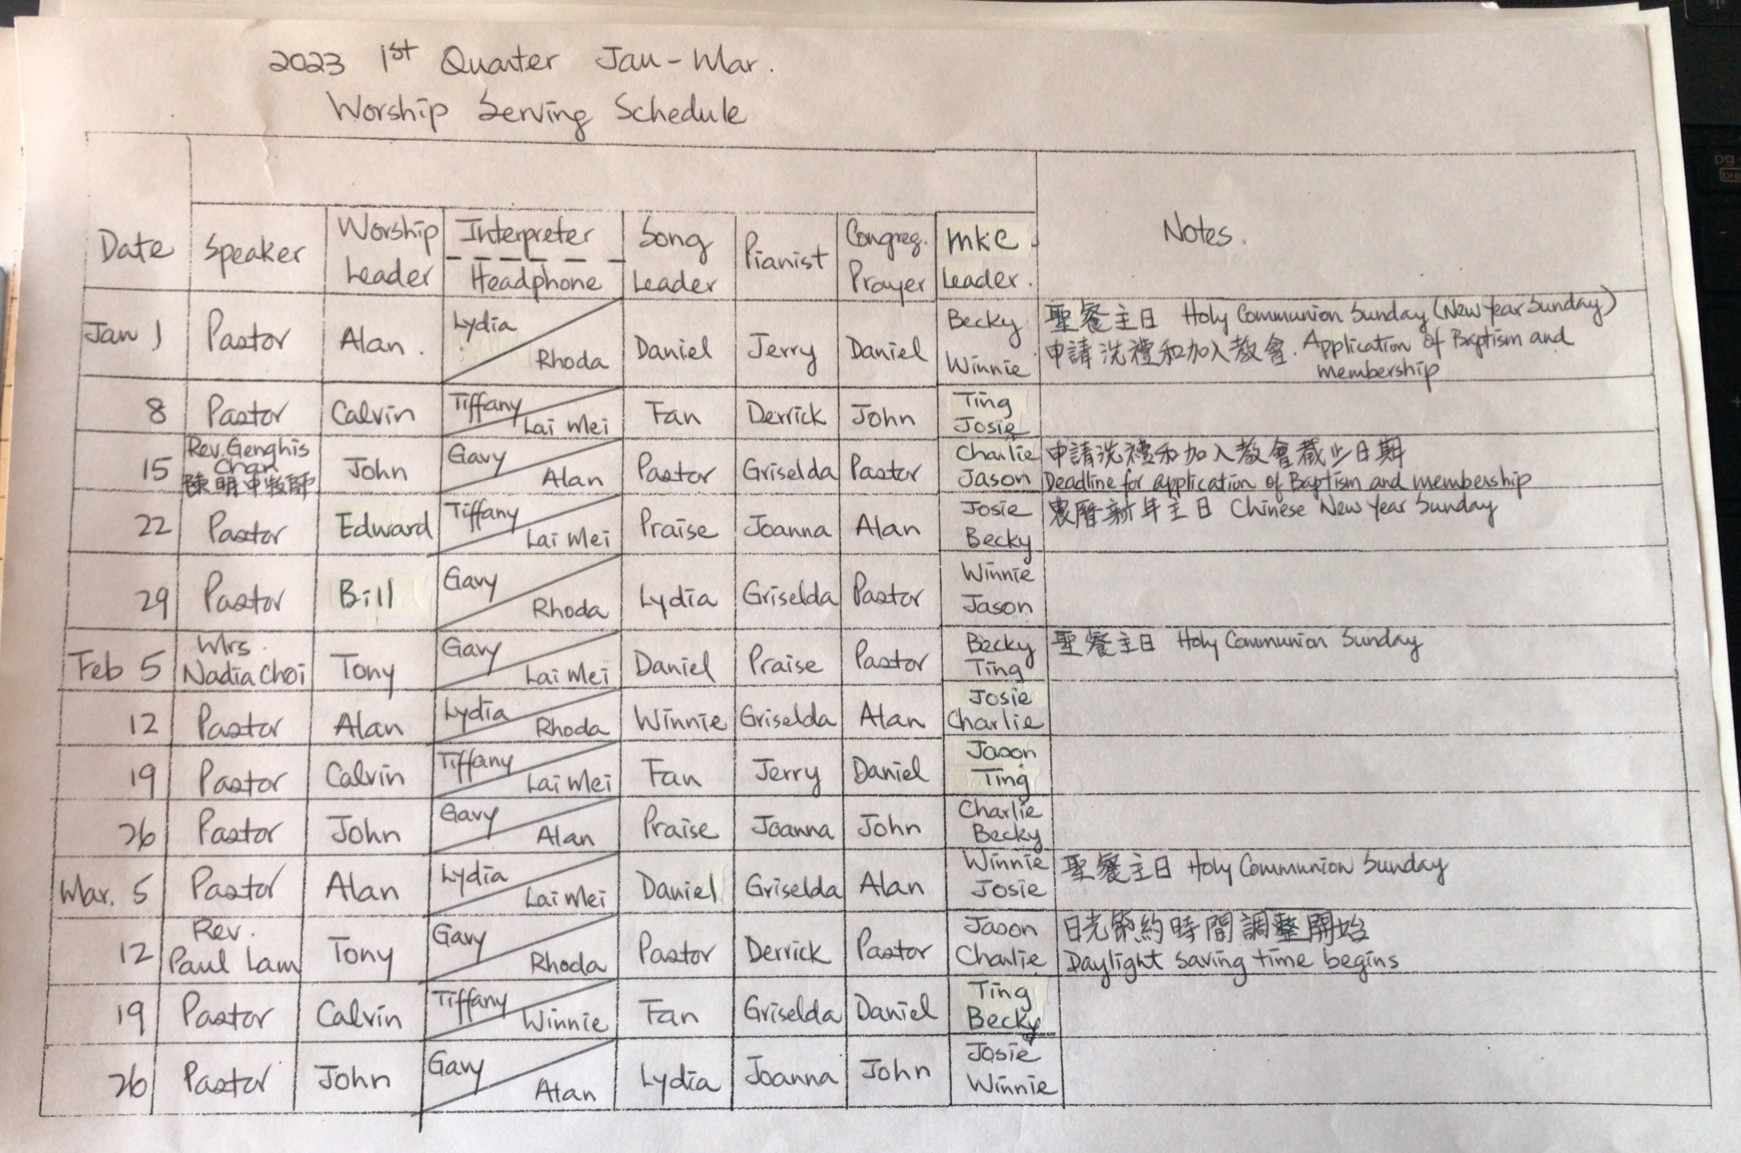 2023 1st Quarter Jan-Mar.
Worship Serving Schedule
Date Speaker Worship Leader Interpreter Headphone Song Leader Pianist Congreg. Prayer MKC Leader. Notes.
Jan 1 Pastor Alan. Lydia Rhoda Daniel Jerry Daniel Becky Winnie 聖餐主日 Holy Communion Sunday (New Year Sunday)
申請洗禮和加入教會. Application of Baptism and
membership
8 Pastor Calvin Tiffany Lai Mei Fan Derrick John Ting Josie
15 Rev. Genghis Chan 陳明中牧師 John Gavy Alan Pastor Griselda Pastor Charlie Jason 申請洗禮和加入教會截止日期
Deadline for application of Baptism and membership
22 Pastor Edward Tiffany Lai Mei Praise Joanna Alan Josie Becky 農曆新年主日 Chinese New Year Sunday
29 Pastor Bill Gavy Rhoda Lydia Griselda Pastor Winnie Jason
Feb 5 Mrs. Nadia Choi Tony Gavy Lai Mei Daniel Praise Pastor Becky Ting 聖餐主日 Holy Communion Sunday
12 Pastor Alan Lydia Rhoda Winnie Griselda Alan Josie Charlie
19 Pastor Calvin Tiffany Lai Mei Fan Jerry Daniel Jason Ting
26 Pastor John Gavy Alan Praise Joanna John Charlie Becky
Mar. 5 Pastor Alan Lydia Lai Mei Daniel Griselda Alan Winnie Josie 聖餐主日 Holy Communion Sunday
12 Rev. Paul Lam Tony Gavy Rhoda Pastor Derrick Pastor Jason Charlie 日光節約時間調整開始
Daylight saving time begins
19 Pastor Calvin Tiffany Winnie Fan Griselda Daniel Ting Becky
26 Pastor John Gavy Alan Lydia Joanna John Josie Winnie